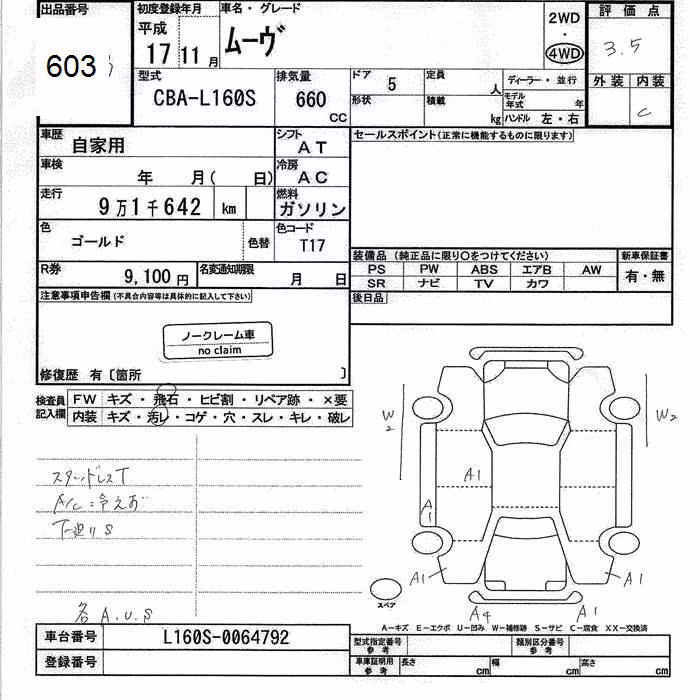 出品番号 603
初度登録年月 平成 17年 11月
車名・グレード ムーヴ
2WD ・ 4WD
評価点 3.5
外装 内装 C
型式 CBA-L160S
排気量 660 CC
ドア 5
形状
定員 人
積載 kg
ディーラー・並行
モデル年式 年
ハンドル 左・右
車歴 自家用
シフト AT
車検 年 月( 日)
冷房 AC
走行 9万1千642 km
燃料 ガソリン
色 ゴールド 色替
色コード T17
R券 9,100 円
名変通知期限 月 日
セールスポイント(正常に機能するものに限ります)
装備品 (純正品に限り○をつけてください)
PS PW ABS エアB AW
SR ナビ TV カワ
新車保証書 有・無
後日品
注意事項申告欄 (不具合内容等は具体的に記入して下さい)
ノークレーム車
no claim
修復歴 有〔箇所 〕
検査員記入欄
FW キズ・飛石・ヒビ割・リペア跡・×要
内装 キズ・汚レ・コゲ・穴・スレ・キレ・破レ
スタッドレスT
A/C:冷えず
下廻りS
各A.U.S
W2
W2
A1
A1
A1
A1
A4
A1
スペア
A―キズ E―エクボ U―凹み W―補修跡 S―サビ C―腐食 XX―交換済
車台番号 L160S-0064792
登録番号
型式指定番号 参考
類別区分番号 参考
車庫証明用 参考
長さ cm
幅 cm
高さ cm